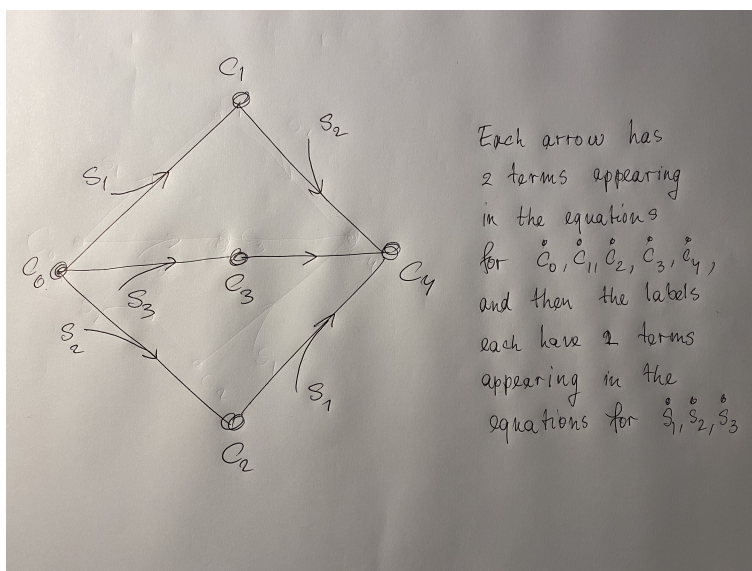 C1
S2
S1
C0
C3
C4
S3
S2
S1
C2
Each arrow has
2 terms appearing
in the equations
for Ċ0, Ċ1, Ċ2, Ċ3, Ċ4,
and then the labels
each have 2 terms
appearing in the
equations for Ṡ1, Ṡ2, Ṡ3